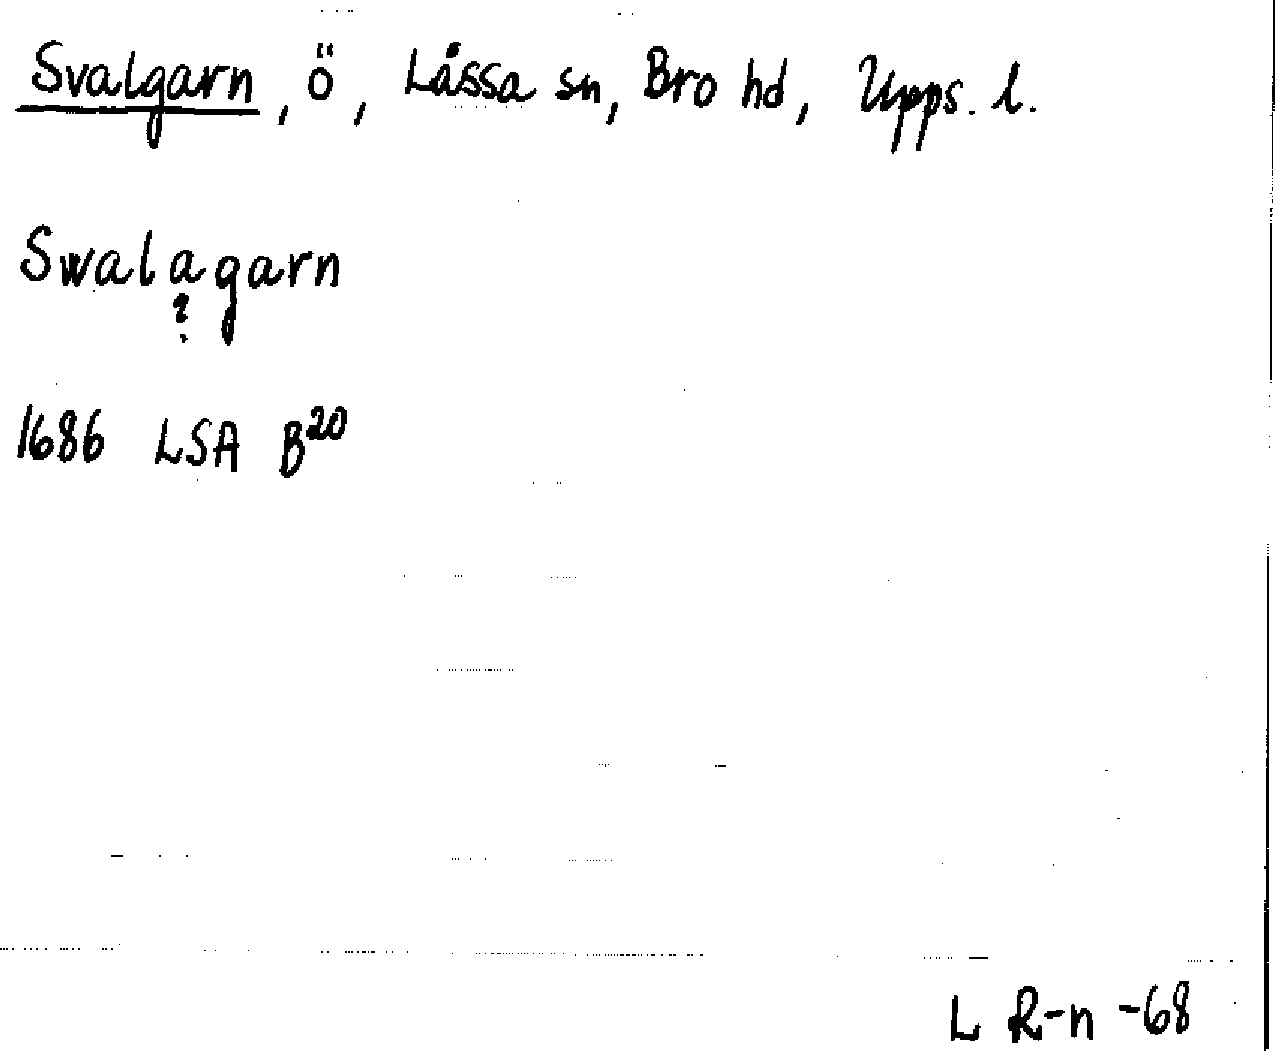 Svalgarn, ö, Låssa sn, Bro hd, Upps. l.
Swalagarn
?
1686 LSA B20
L R-n -68